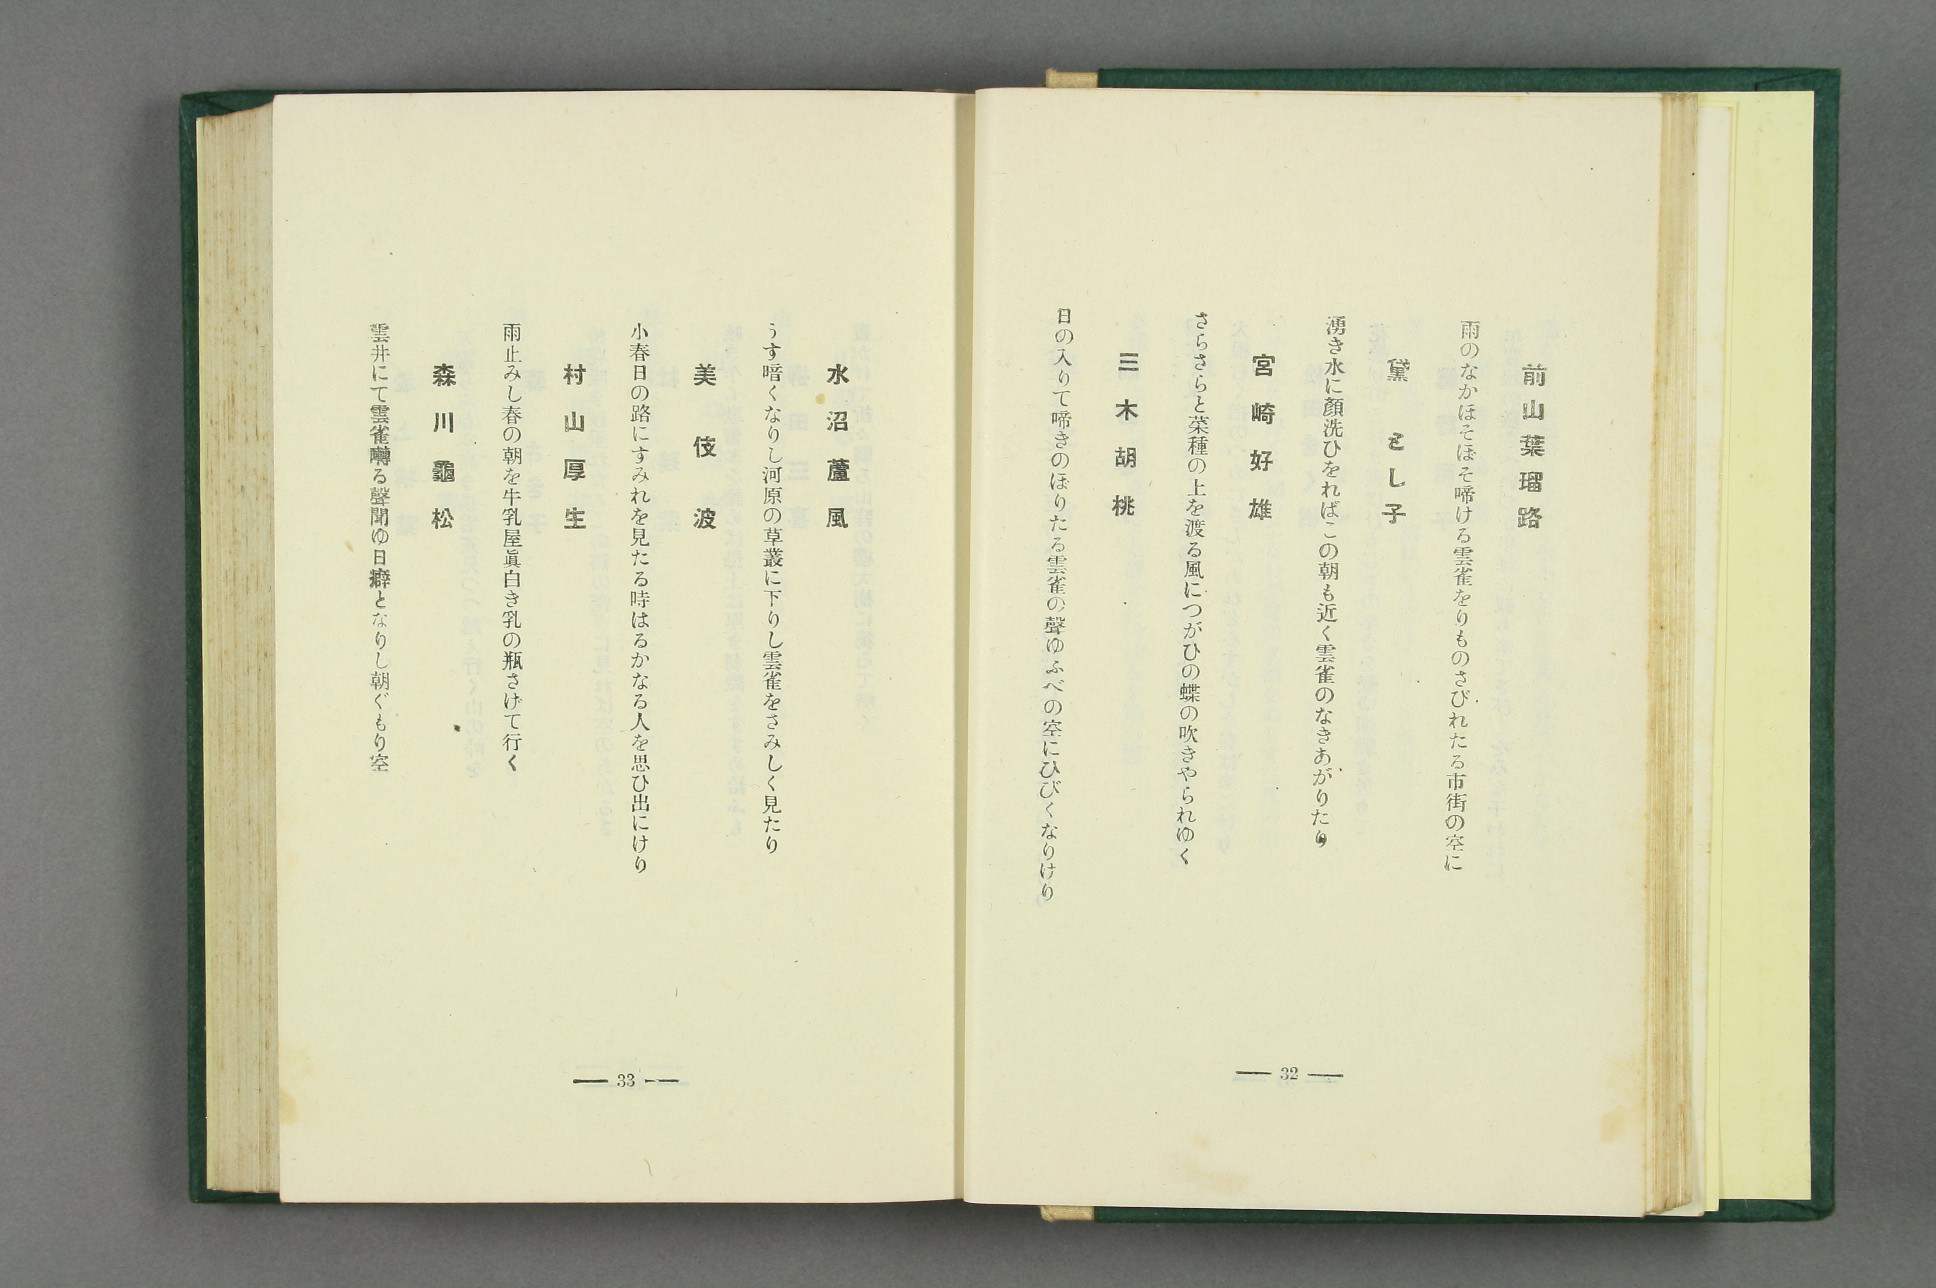 前山葉瑠路
雨のなかほそぼそ啼ける雲雀をりものさびれたる市街の空に
黛とし子
湧き水に顏洗ひをればこの朝も近く雲雀のなきあがりたり
宮崎好雄
さらさらと菜種の上を渡る風につがひの蝶の吹きやられゆく
三木胡桃
日の入りて啼きのぼりたる雲雀の聲ゆふべの空にひびくなりけり
32
水沼蘆風
うす暗くなりし河原の草叢に下りし雲雀をさみしく見たり
美伎波
小春日の路にすみれを見たる時はるかなる人を思ひ出にけり
村山厚生
雨止みし春の朝を牛乳屋眞白き乳の瓶さげて行く
森川龜松
雲井にて雲雀囀る聲聞ゆ日癖となりし朝ぐもり空
33